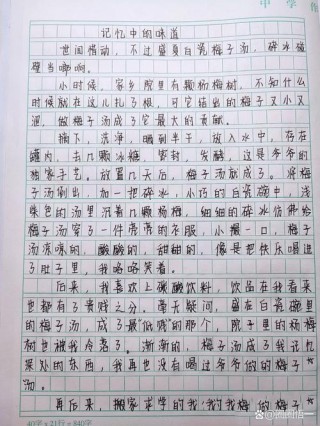 中学作
记忆中的味道
世间惜动，不过盛夏白瓷梅子汤，碎冰碰
壁当啷响。
小时候，家乡院里有颗杨梅树，不知什么
时候就在这儿扎了根，可它结出的梅子又小又
涩，做梅子汤成了它最大的贡献。
摘下，洗净，晒到半干，放入水中，存在
罐内，去几颗冰糖，密封，发酵，这是爷爷的
独家手艺。放置几天后，梅子汤就成了。将梅
子汤倒出，加一把碎冰，小巧的白瓷碗中，浅
紫色的汤里沉着几颗杨梅，细细的碎冰仿佛给
梅子汤穿了一件亮亮的衣服，小嘬一口，梅子
汤凉咪的，酸酸的，甜甜的，像是把快乐喝进
了肚子里，我咯咯笑着。
后来，我喜欢上了碳酸饮料，饮品在我看来
也都有了贵贱之分。毫无疑问，盛在白瓷碗里
的梅子汤，成了最“低贱”的那个，院子里的杨梅
树也被我冷落了。渐渐的，梅子汤成了我记忆
深处的东西，我再也没有喝过爷爷做的梅子
汤。
再后来，搬家求学的我，
40字×21行=840字